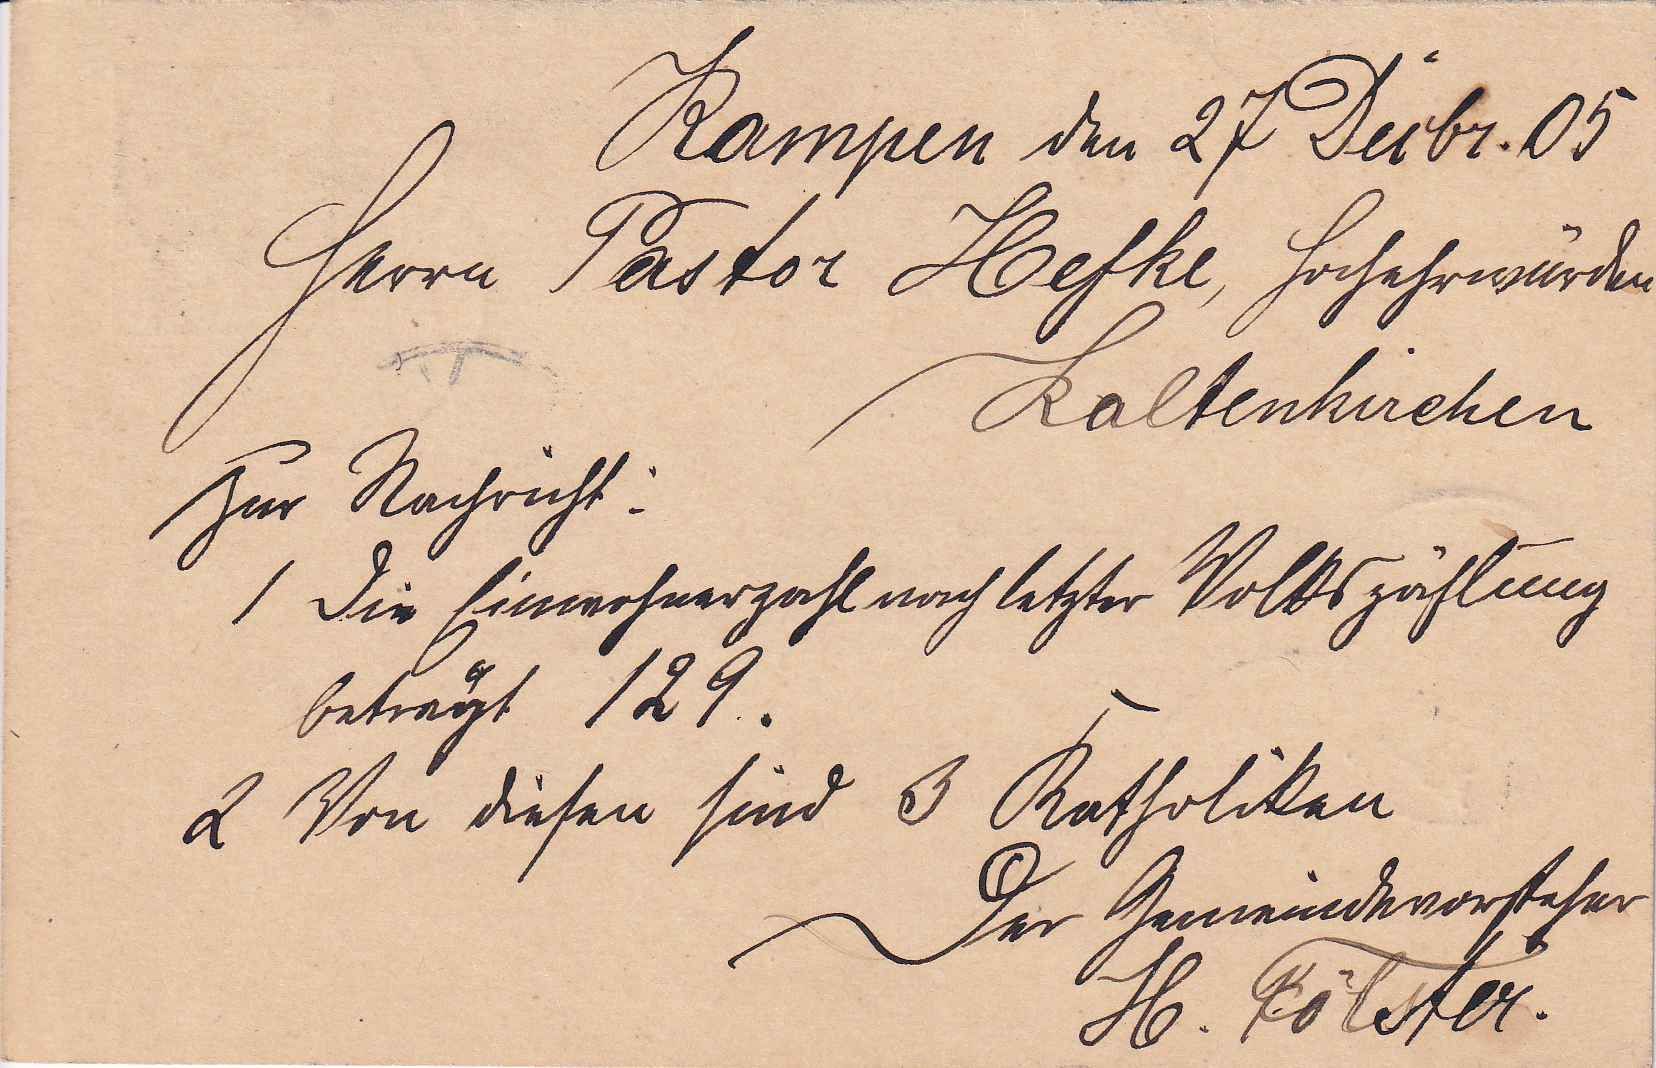 Kampen den 27 Decbr. 05
Herrn Pastor Hefke, Hochehrwürden
Kaltenkirchen
Zur Nachricht:
1 Die Einwohnerzahl nach letzter Volkszählung
beträgt 129.
2 Von diesen sind 3 Katholiken
Der Gemeindevorsteher
H. Fölster.